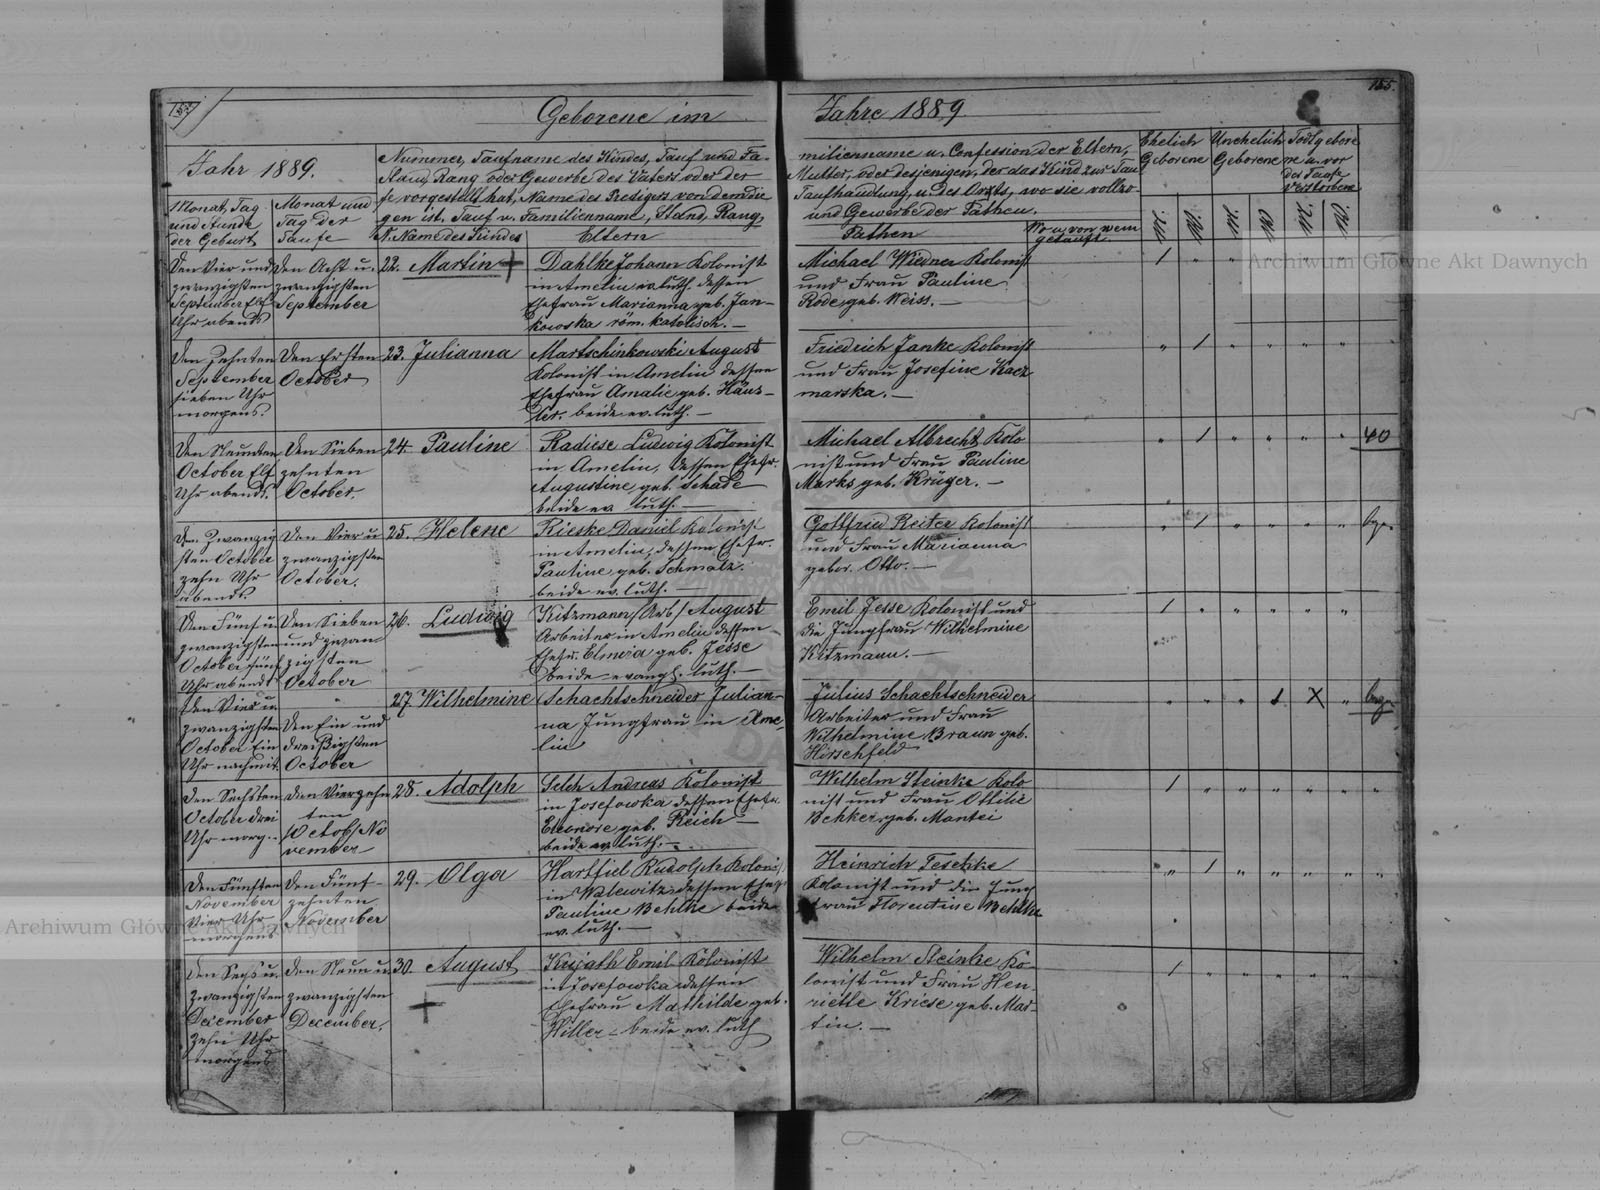 155.
Geborene im
Jahre 1889
Jahr 1889.
Monat, Tag
und Stunde
der Geburt
Monat und
Tag der
Taufe
Nummer, Taufname des Kindes, Tauf und Fa-
Stand Rang oder Gewerbe des Vaters oder der
fe vorgestellt hat, Name des Predigers von dem die
gen ist, Tauf u. Familienname, Stand, Rang,
N. Name des Kindes
Eltern
milienname u. Confession der Eltern,
Mutter, oder desjenigen, der das Kind zur Tau
Taufhandlung, u. des Orts, wo sie vollzo-
und Gewerbe der Pathen.
Pathen
Wo u. von wem
getauft.
Ehelich
Geborene
Unehelich
Geborene
Todtgebore
ne u. vor
der Taufe
Verstorbene
Den Vier und
zwanzigsten
September Elf
Uhr abends
Den Acht u.
zwanzigsten
September
22. Martin +
Dahlke Johann Kolonist
in Amelin ev. luth. dessen
Ehefrau Marianna geb. Jan-
kowska röm. katolisch. —
Michael Wiedner Kolonist
und Frau Pauline
Rode, geb. Weiss. —
1 " " " "
Den Zehnten
September
sieben Uhr
morgens.
Den Ersten
October
23. Julianna
Martschinkowski August
Kolonist in Amelin dessen
Ehefrau Amalie geb. Häus-
ler. beide ev. luth. —
Friedrich Janke Kolonist
und Frau Josefine Kacz
marska. —
" 1 " " " "
Den Neunten
October Elf
Uhr abends.
Den Sieben
zehnten
October.
24. Pauline
Radiese Ludwig Kolonist
in Amelin, dessen Ehefr.
Augustine geb. Schade
beide ev. luth. —
Michael Albrecht Kolo
nist und Frau Pauline
Marks geb. Krüger. —
" 1 " " " " 40
Den Zwanzig
sten October
zehn Uhr
abends.
Den Vier u
zwanzigsten
October.
25. Helene
Rieske Daniel Kolonist
in Amelin, dessen Ehefr.
Pauline geb. Schmalz.
beide ev. luth. —
Gottfried Reiter Kolonist
und Frau Marianna
gebor. Otto. —
" 1 " " " "
Den Fünf u.
zwanzigsten
October fünf
Uhr abends
Den Sieben
und zwan
zigsten
October
26. Ludwig
Kitzmann /Arb/ August
Arbeiter in Amelin dessen
Ehefr. geb. Jesse
beide evangl. luth. —
Emil Jesse Kolonist und
die Jungfrau Wilhelmine
Kitzmann. —
1 " " " " "
Den Vier u
zwanzigsten
October Ein
Uhr nachmit.
Den Ein und
dreißigsten
October
27. Wilhelmine
Schachtschneider Julian-
na Jungfrau in Ame
lin
Julius Schachtschneider
Arbeiter und Frau
Wilhelmine Braun geb.
Hirschfeld
" " " 1 X "
Den Sechsten
October drei
Uhr morg..
Den Vierzehn
ten
/Octob/ No
vember
28. Adolph
Selch Andreas Kolonist
in Josefowka dessen Ehefr.
Eleonore geb. Reich —
beide ev. luth. —
Wilhelm Steinke Kolo
nist und Frau Ottilie
Behker, geb. Mantei
1 " " " " " "
Den Fünften
November
Vier Uhr
morgens
Den Fünf-
zehnten
November
29. Olga
Hartfiel Rudolph Kolonist
in Walewitz dessen Ehefr.
Pauline Behlke beide
ev. luth. —
Heinrich Teschke
Kolonist und die Jung
frau Florentine Behlke
" 1 " " " " "
Den Sechs u.
zwanzigsten
December
zehn Uhr
morgens
Den Neun u.
zwanzigsten
December.
30. August
+
Kujath Emil Kolonist
in Josefowka dessen
Ehefrau Mathilde geb.
Hiller — beide ev. luth
Wilhelm Steinke Ko-
lonist und Frau Hen-
riette Kriese geb. Mar-
tin. —
1 " " " " "
Archiwum Główne Akt Dawnych
Archiwum Główne Akt Dawnych